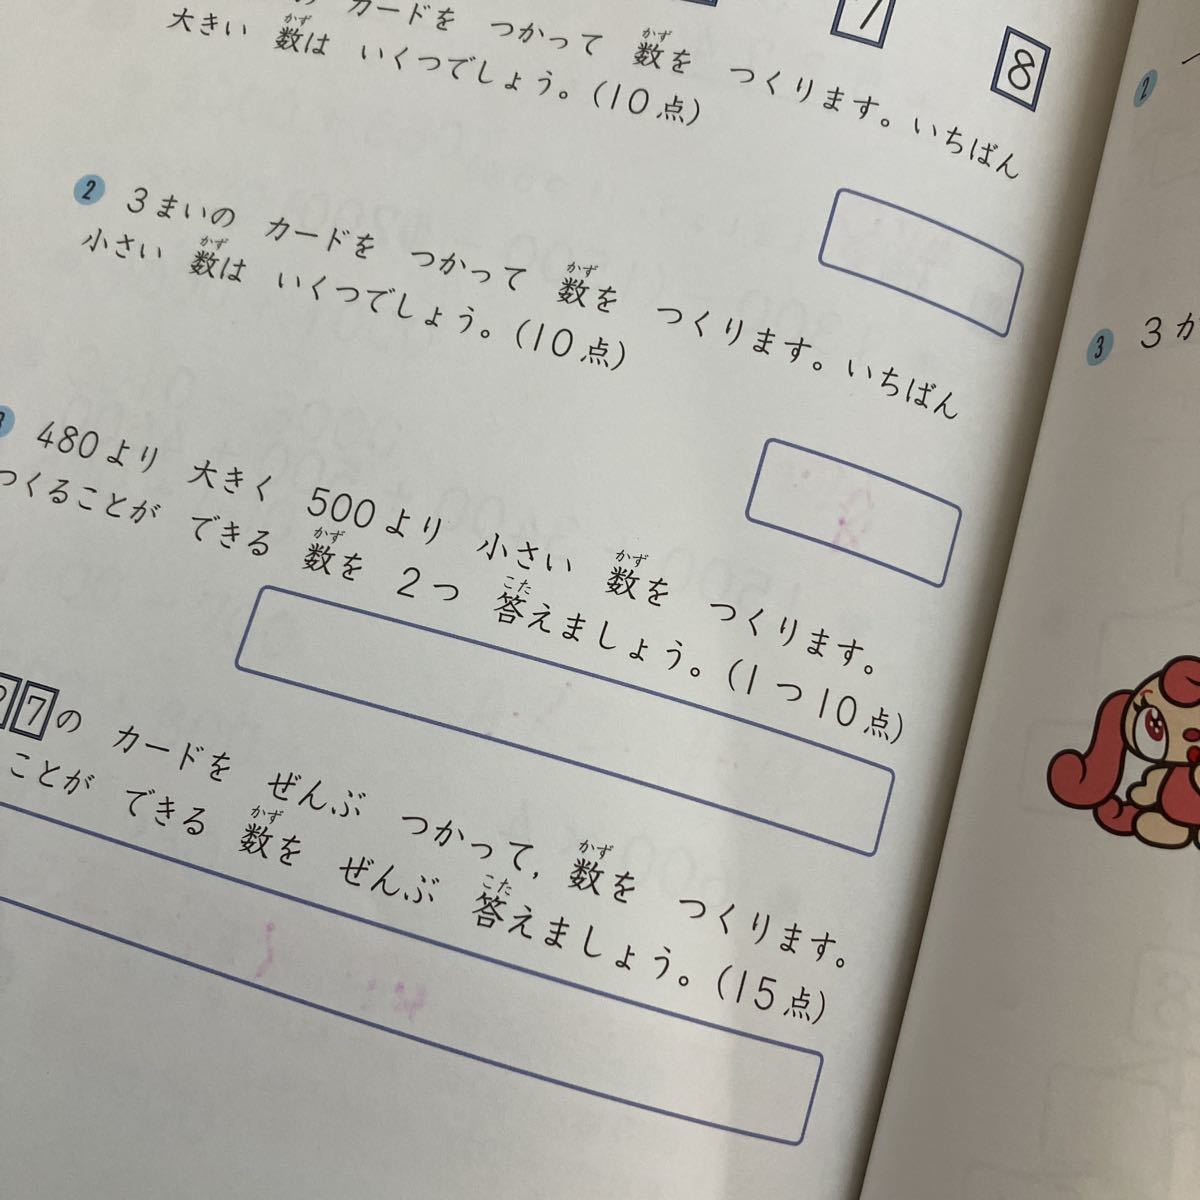 7
8
カードを つかって 数を つくります。いちばん
かず
大きい 数は いくつでしょう。(10点)
かず
2 3まいの カードを つかって 数を つくります。いちばん
かず
小さい 数は いくつでしょう。(10点)
かず
480より 大きく 500より 小さい 数を つくります。
かず
つくることが できる 数を 2つ 答えましょう。(1つ10点)
かず
こた
7の カードを ぜんぶ つかって,数を つくります。
かず
ことが できる 数を ぜんぶ 答えましょう。(15点)
かず
こた
2
3 3